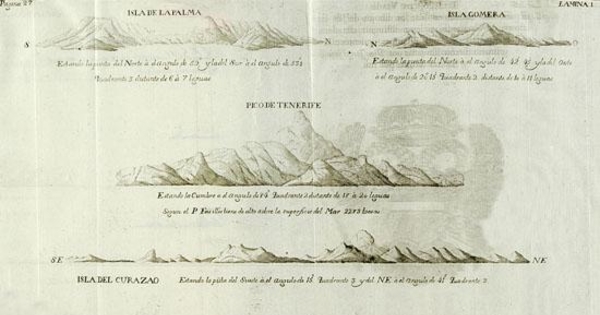 Pagina 27
LAMINA 1.
ISLA DE LA PALMA
S N
Estando la punta del Norte à el angulo de 52° y la del Sur à el angulo de
Quadrante 3 distante de 6 à 7 leguas
ISLA GOMERA
N O
Estando la punta del Norte à el angulo de y la del Oeste
à el angulo de Quadrante 2. distante de 10 à 11 leguas
PICO DE TENERIFE
Estando la Cumbre à el angulo de Quadrante distante de leguas
Segun el P. Feuillée tiene de alto sobre la superficie del Mar 2213 toesas
SE NE
ISLA DEL CURAZAO
Estando la del à el angulo de Quadrante 3 y del NE à el angulo de Quadrante 2